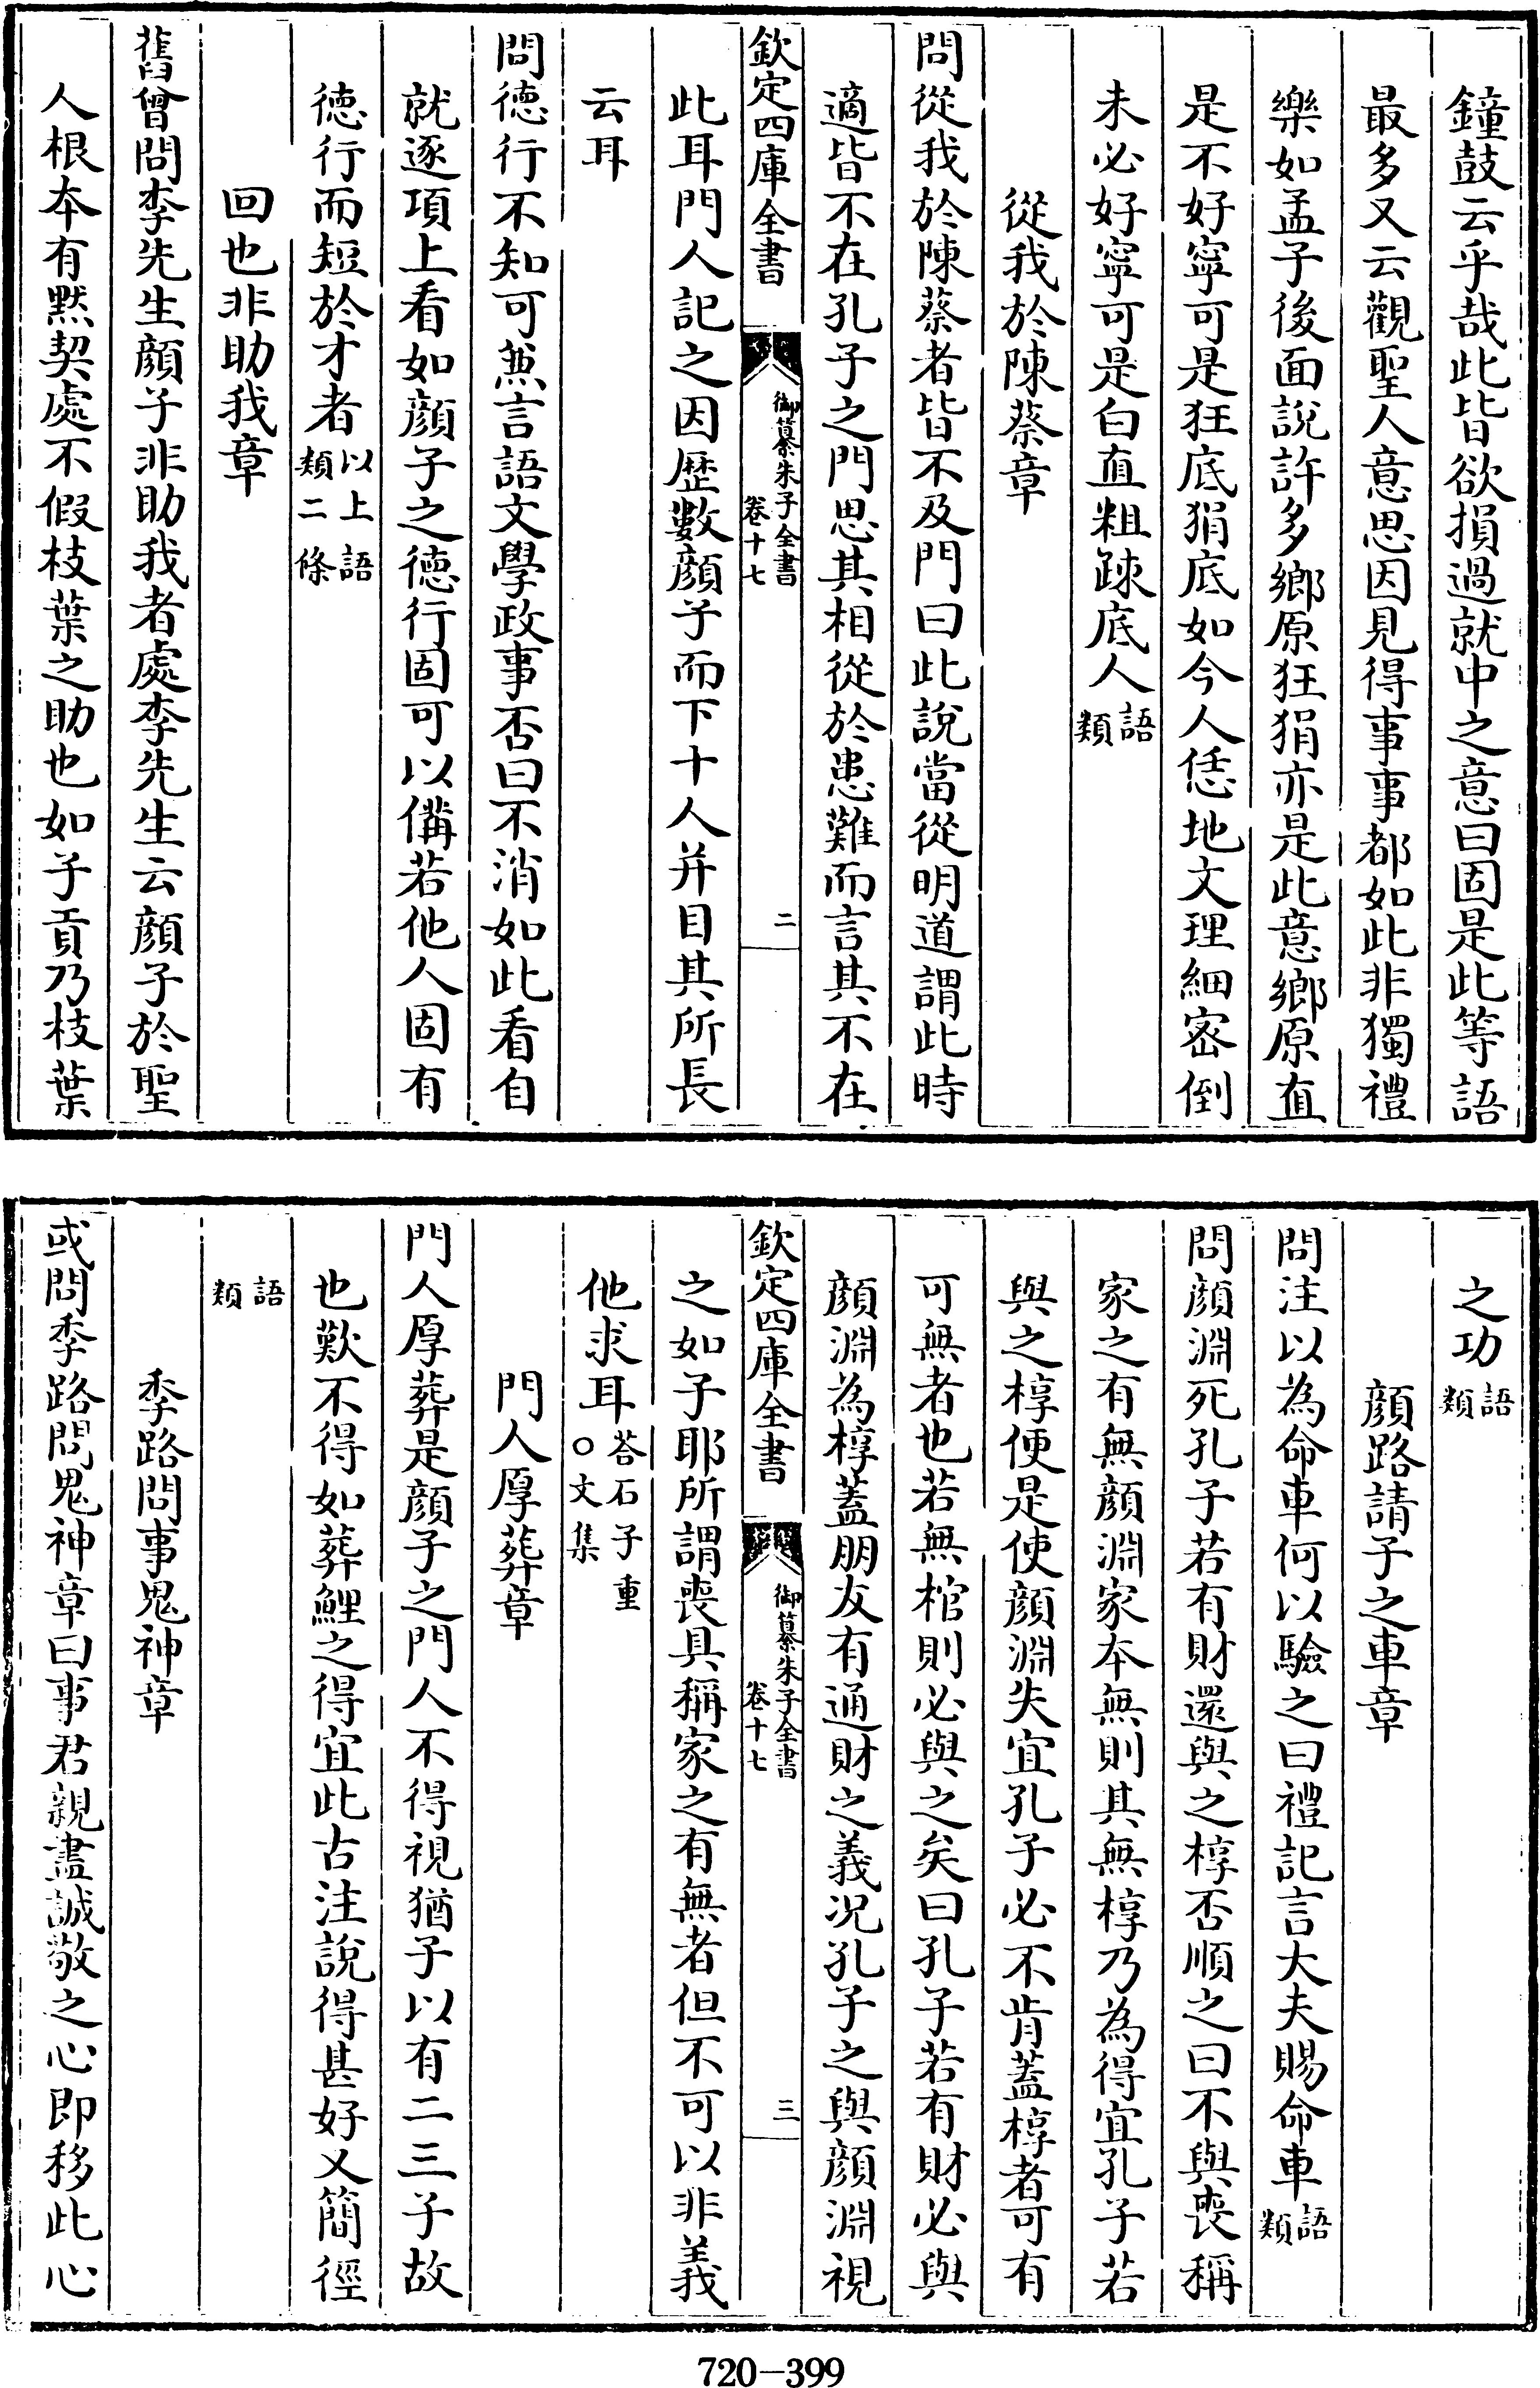 鐘鼓云乎哉此皆欲損過就中之意曰固是此等語
最多又云觀聖人意思因見得事事都如此非獨禮
樂如孟子後面說許多鄉原狂狷亦是此意鄉原直
是不好寧可是狂底狷底如今人恁地文理細宻倒
未必好寧可是白直粗疎底人語類
從我於陳蔡章
問從我於陳蔡者皆不及門曰此說當從明道謂此時
適皆不在孔子之門思其相從於患難而言其不在
欽定四庫全書
御纂朱子全書
卷十七
二
此耳門人記之因歴數顔子而下十人并目其所長
云耳
問徳行不知可兼言語文學政事否曰不消如此看自
就逐項上看如顔子之徳行固可以備若他人固有
徳行而短於才者以上語類二條
回也非助我章
舊曾問李先生顔子非助我者處李先生云顔子於聖
人根本有黙契處不假枝葉之助也如子貢乃枝葉
之功語類
顔路請子之車章
問注以為命車何以驗之曰禮記言大夫賜命車語類
問顔淵死孔子若有財還與之椁否順之曰不與喪稱
家之有無顔淵家本無則其無椁乃為得宜孔子若
與之椁便是使顔淵失宜孔子必不肯蓋椁者可有
可無者也若無棺則必與之矣曰孔子若有財必與
顔淵為椁蓋朋友有通財之義况孔子之與顔淵視
欽定四庫全書
御纂朱子全書
卷十七
三
之如子耶所謂喪具稱家之有無者但不可以非義
他求耳荅石子重○文集
門人厚葬章
門人厚葬是顔子之門人不得視猶子以有二三子故
也歎不得如葬鯉之得宜此古注說得甚好又簡徑
語類
季路問事鬼神章
或問季路問鬼神章曰事君親盡誠敬之心即移此心
720-399